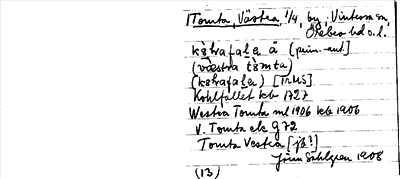 Tomta, Västra, 1/4, by, Vintrosa sn,
Örebro hd ö.l.
kɛ̀hafala å (prim.-ant.)
(væstra tɔ̀mta)
(kɛhafala) [TrMS]
Kohlfallet kb 1727
Westra Tomta ml 1906 keb 1906
V. Tomta ek G72
Tomta Vestra [jb?]
Jöran Sahlgren 1908
(13)